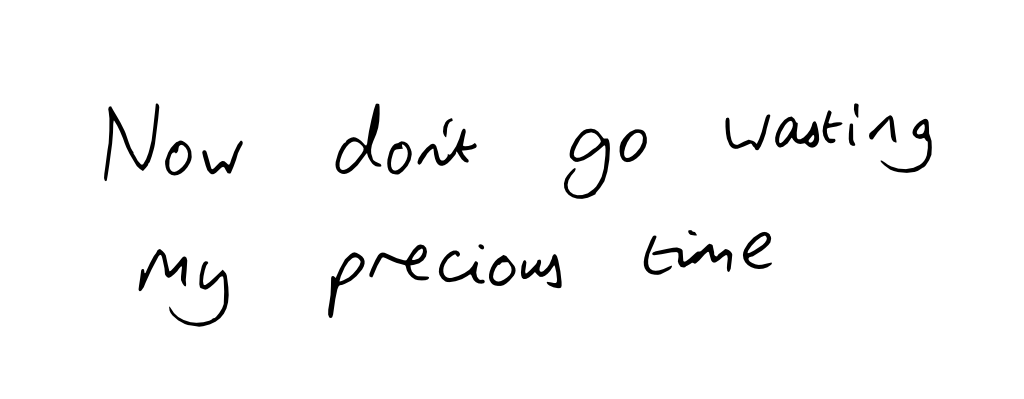 Now don't go wasting
my precious time